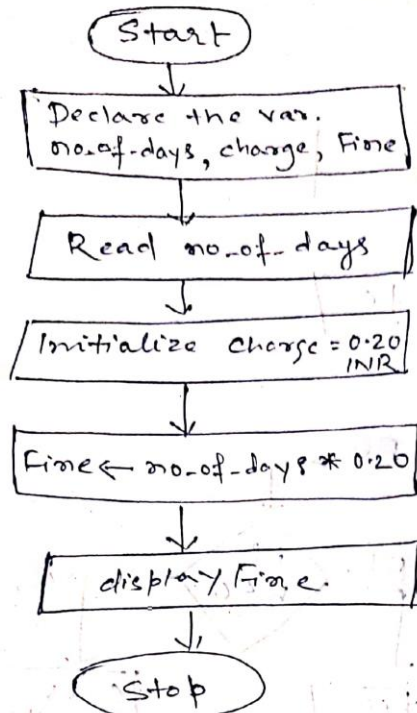 Start
Declare the var.
no_of_days, charge, Fine
Read no_of_days
Initialize charge = 0.20
INR
Fine ← no_of_days * 0.20
display Fine.
Stop